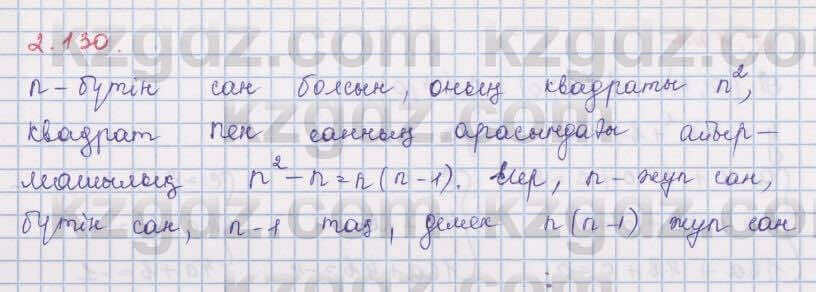 2.130.
n – бүтін сан болсын, оның квадраты n²,
квадрат пен санның арасындағы айыр–
машылық n² – n = n(n–1). Егер, n – жұп сан,
бүтін сан, n–1 тақ, демек n(n–1) жұп сан
kzgdz.com